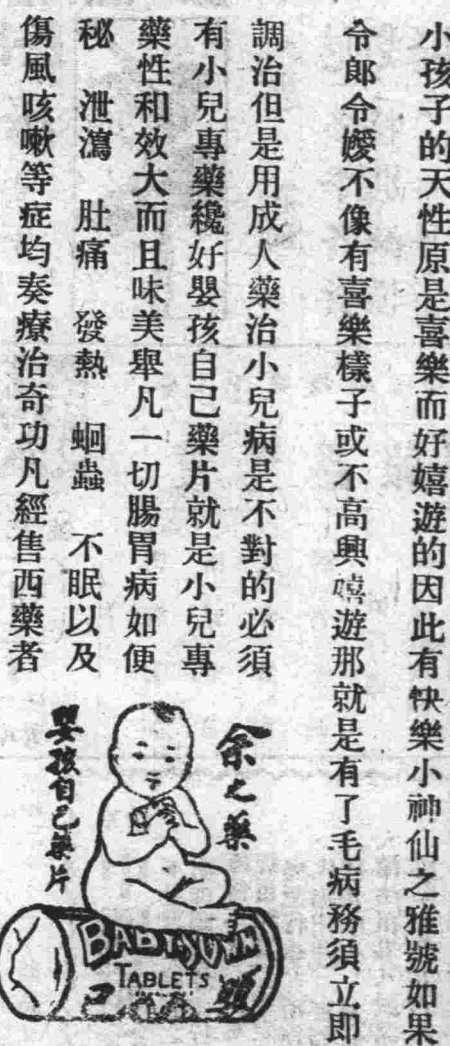 小孩子的天性原是喜樂而好嬉遊的因此有快樂小神仙之雅號如果
令郎令嬡不像有喜樂樣子或不高興嬉遊那就是有了毛病務須立即
調治但是用成人藥治小兒病是不對的必須
有小兒專藥纔好嬰孩自己藥片就是小兒專
藥性和效大而且味美舉凡一切腸胃病如便
秘 泄瀉 肚痛 發熱 蛔蟲 不眠以及
傷風咳嗽等症均奏療治奇功凡經售西藥者
余之藥
嬰孩自己藥片
BABY'S OWN
TABLETS
己